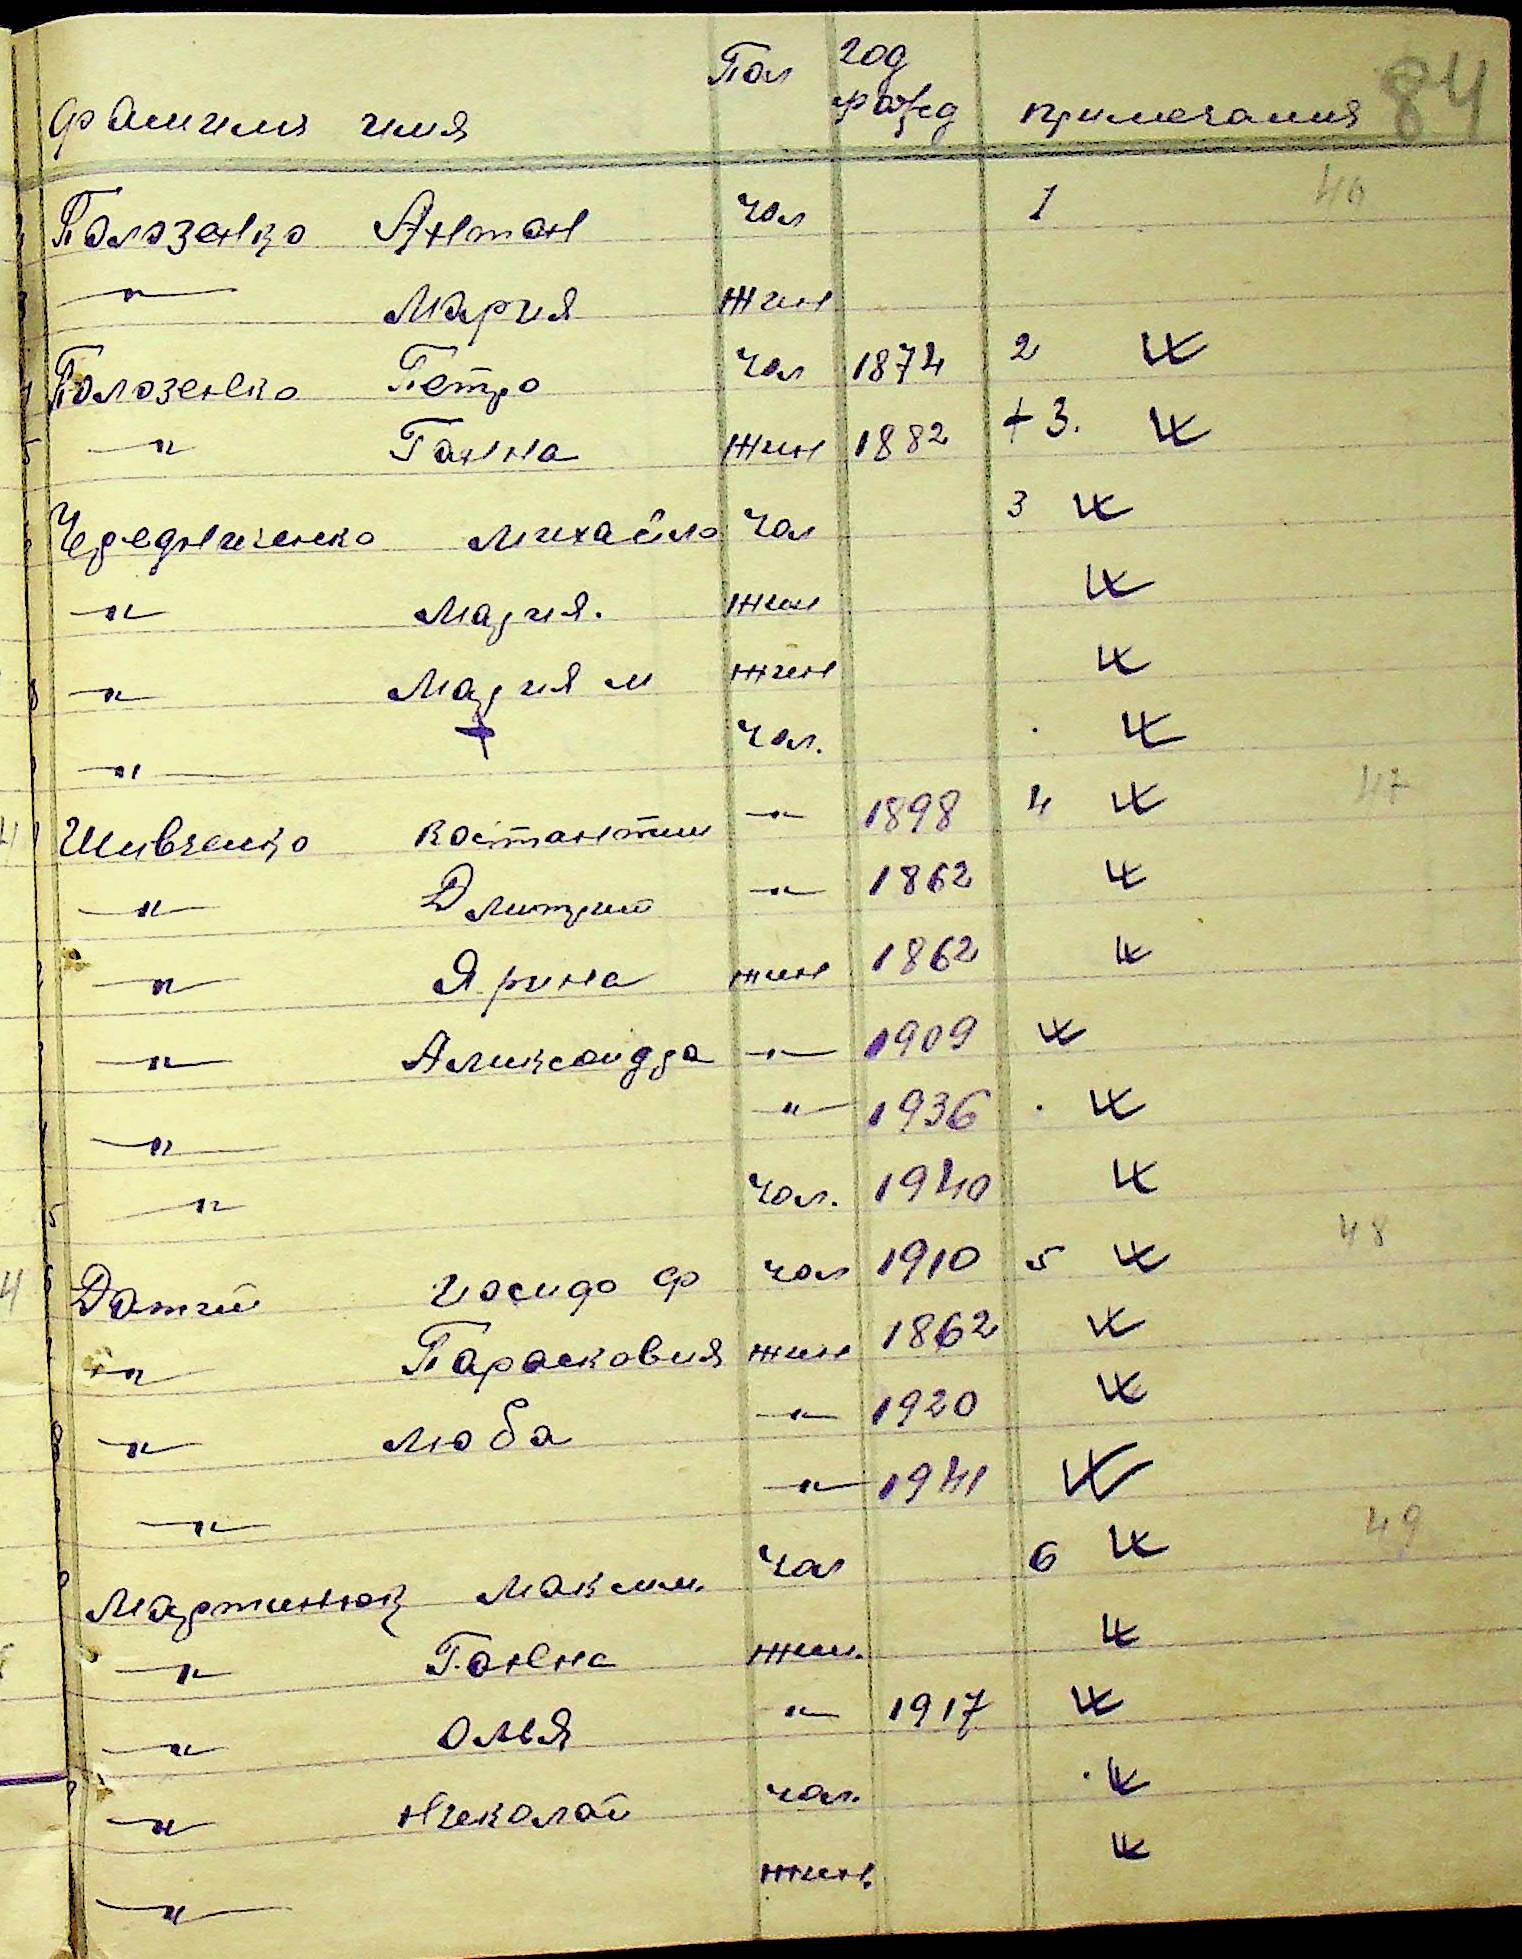 84
фамилия имя Пол год рожд примечания
Полозенко Антон чол 1 46
—"— Мария жин
Полозенко Петро чол 1874 2
—"— Ганна жин 1882 +3.
Чередниченко Михайло чол 3
—"— Мария. жин
—"— Мария м жин
—"— + чол.
Шивченко Костантин —"— 1898 4 47
—"— Дмитрий —"— 1862
—"— Ярина жин 1862
—"— Александра —"— 1909
—"— —"— 1936
—"— чол. 1940
чол 1910 5 48
—"— Парасковия жин 1862
—"— Люба —"— 1920
—"— —"— 1941
Мартинюк Максим. чол 6 49
—"— Ганна жин.
—"— Оля —"— 1917
—"— Николай чол.
—"— жин.